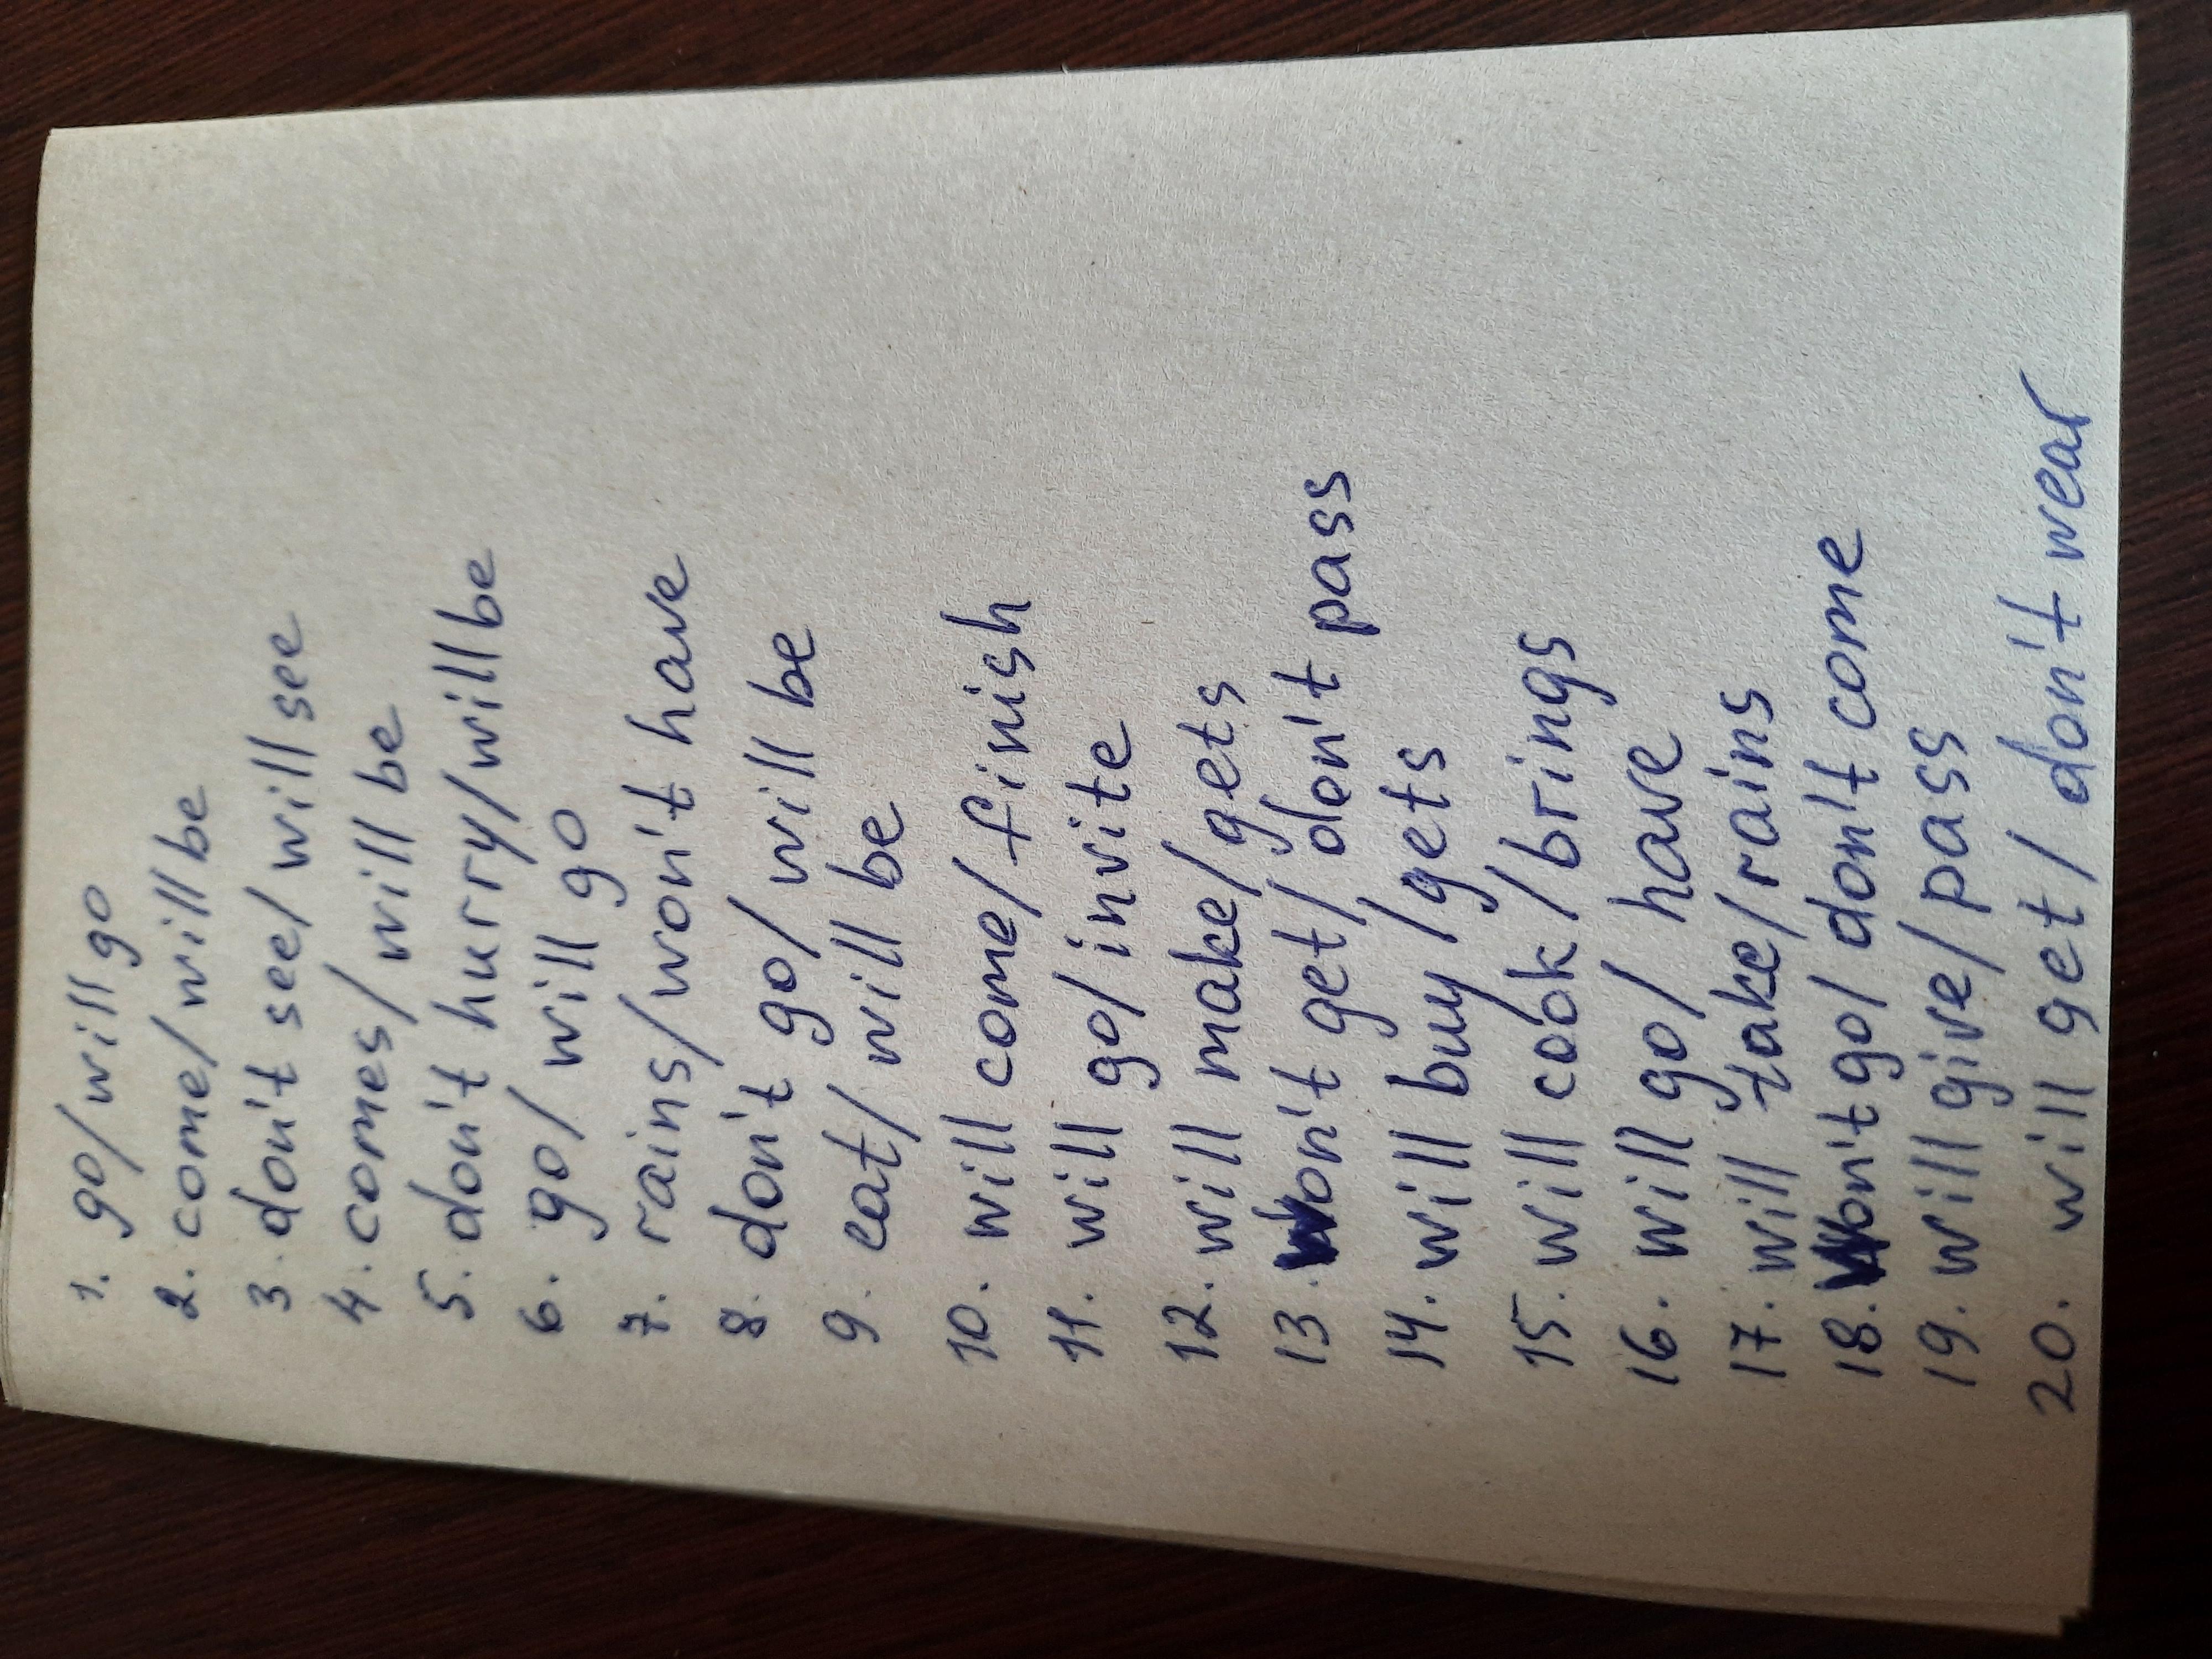 1. go/will go
2. come/will be
3. don't see/will see
4. comes/will be
5. don't hurry/will be
6. go/will go
7. rains/won't have
8. don't go/will be
9. eat/will be
10. will come/finish
11. will go/invite
12. will make/gets
13. Won't get/don't pass
14. will buy/gets
15. will cook/brings
16. will go/have
17. will take/rains
18. Won't go/don't come
19. will give/pass
20. will get/don't wear